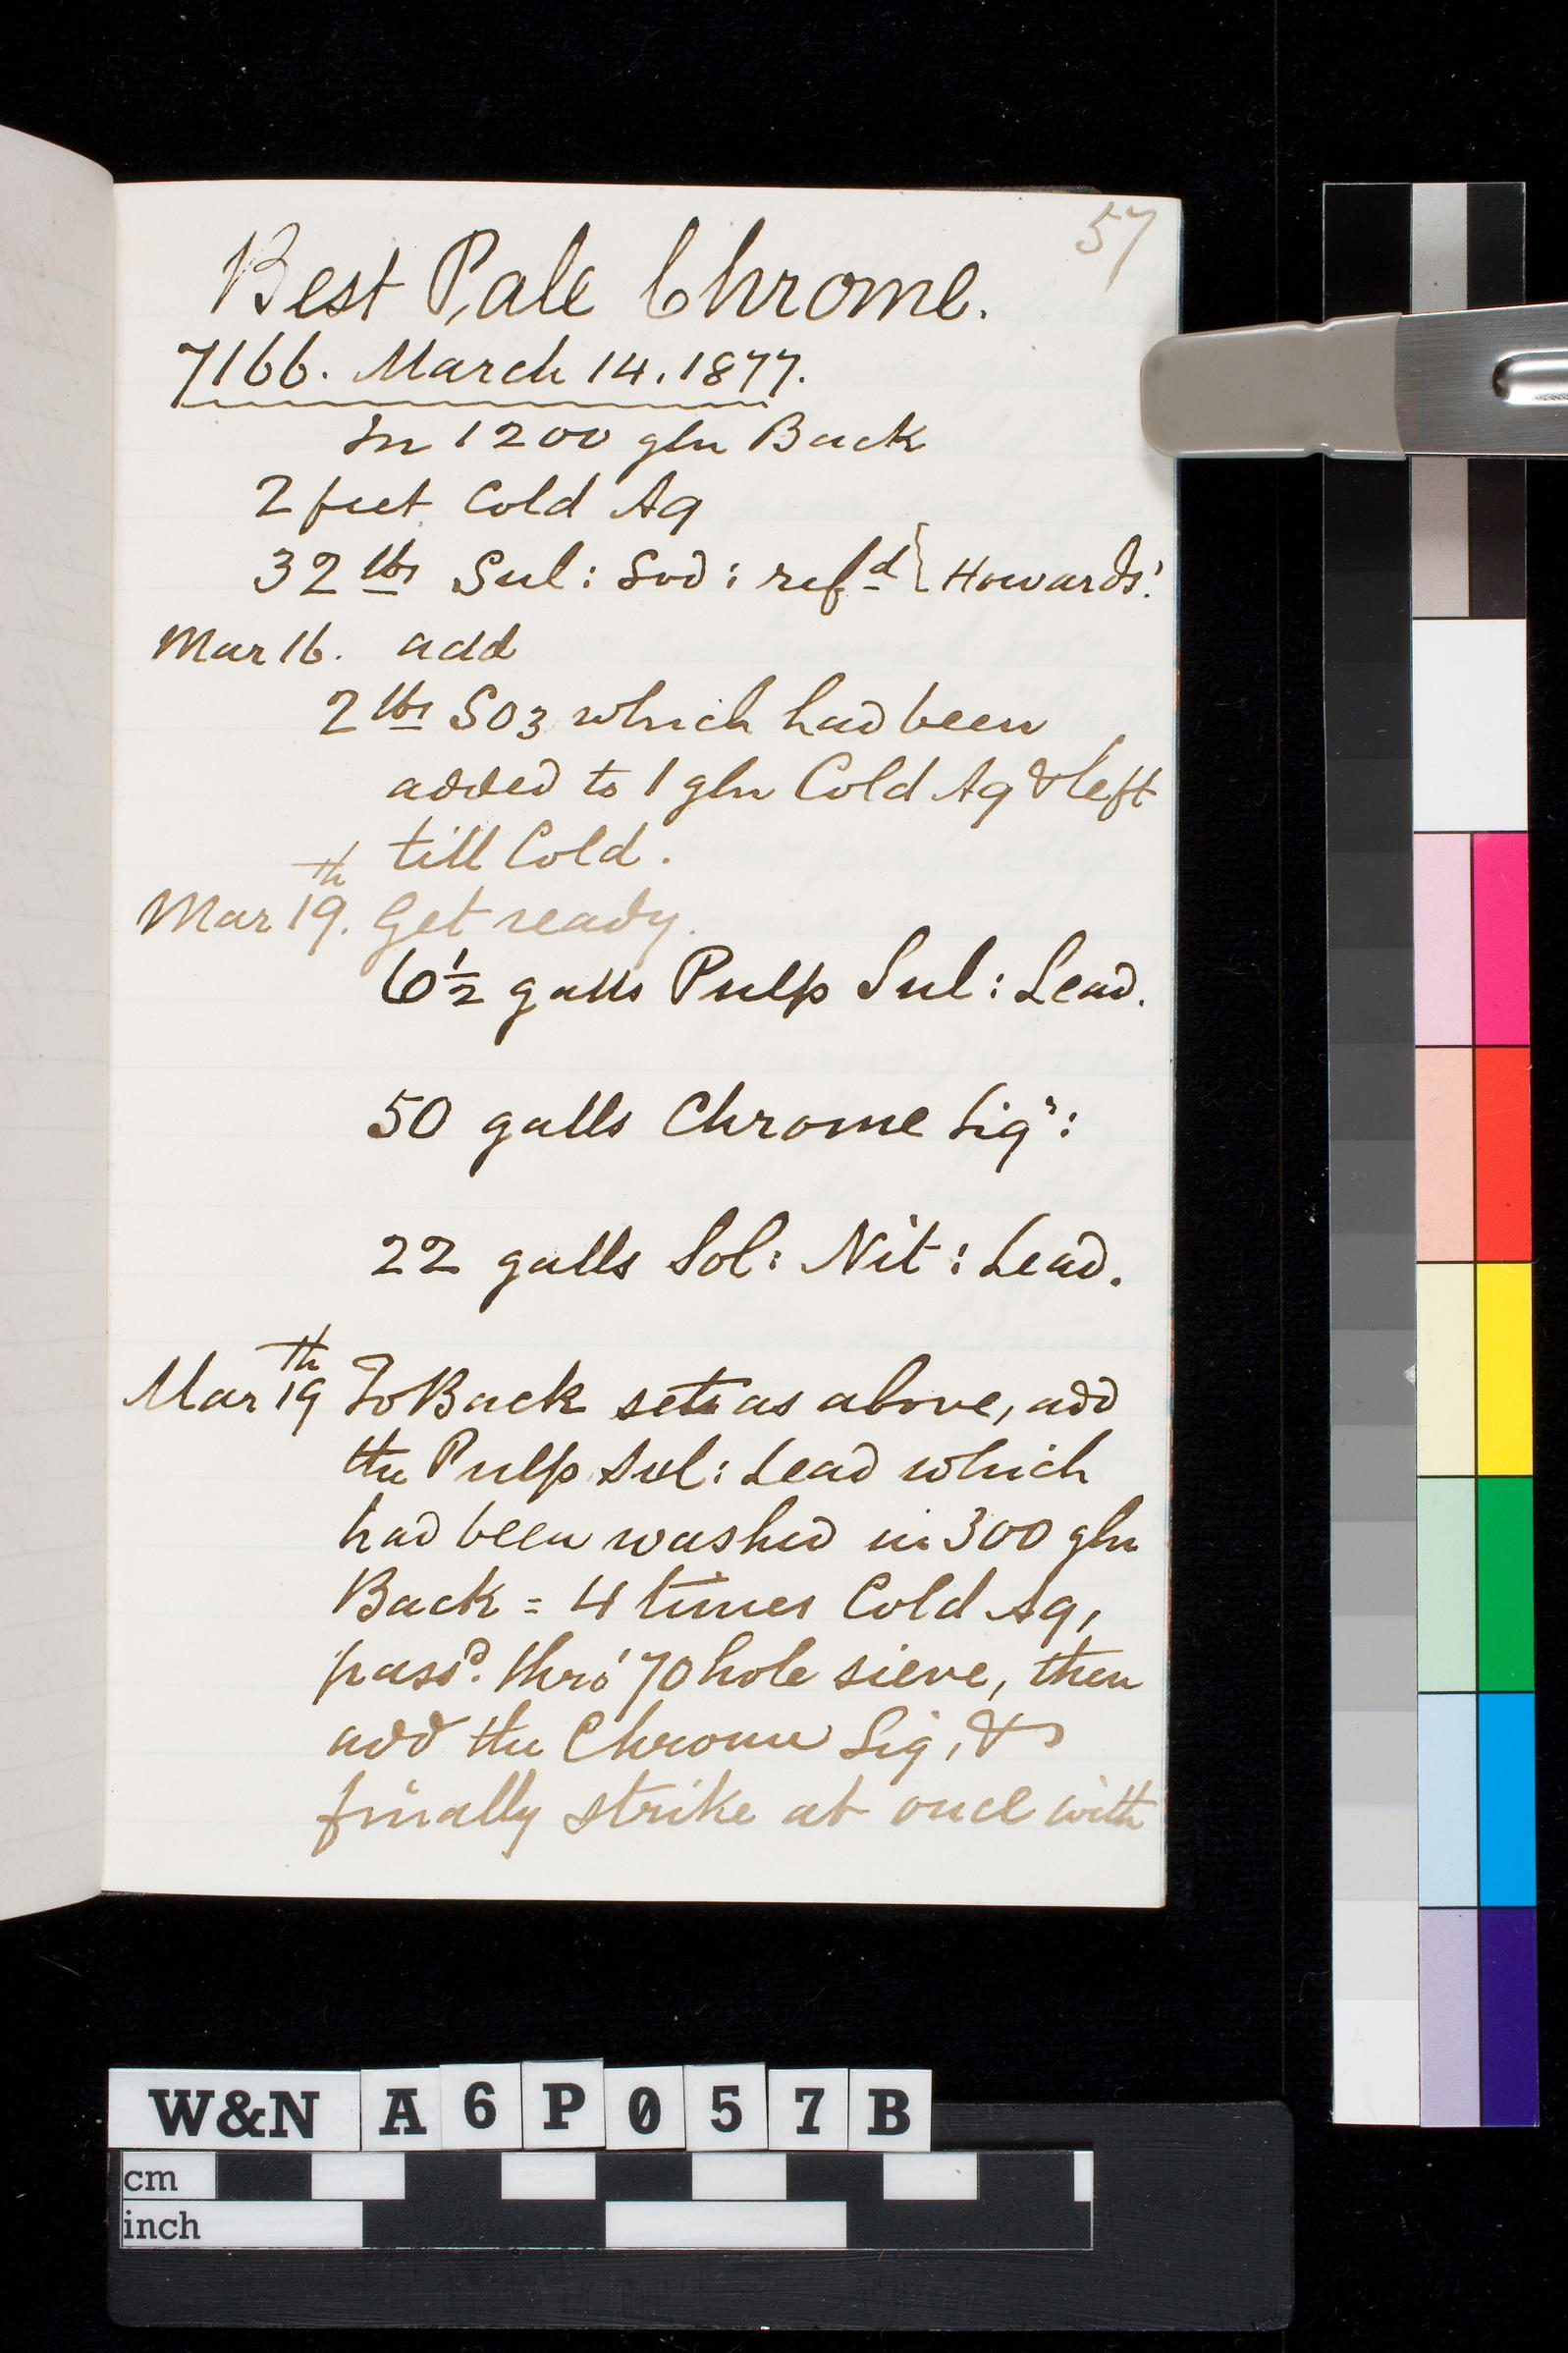 57
Best Pale Chrome.
7166. March 14. 1877.
In 1200 gln Back
2 feet Cold Aq
32 lbs Sul: Sod: refd { Howards'.
Mar 16. add
2 lbs SO3 which had been
added to 1 gln Cold Aq & left
till Cold.
Mar 19th. Get ready.
6 1/2 galls Pulp Sul: Lead.
50 galls Chrome Liqr:
22 galls Sol: Nit: Lead.
Mar 19th To Back set as above, add
the Pulp Sul: Lead which
had been washed in 300 gln
Back = 4 times Cold Aq,
passd. thro' 70 hole sieve, then
add the Chrome Liq, &
finally strike at once with
W&N A6P057B
cm
inch